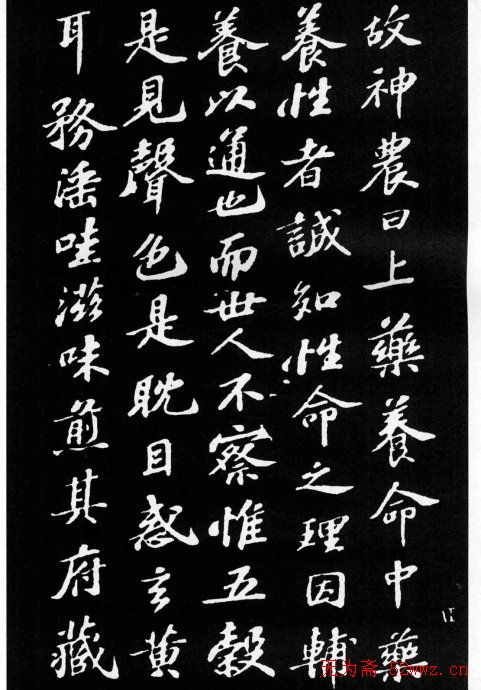 故神農曰上藥養命中藥
養性者誠知性命之理因輔
養以通也而世人不察惟五穀
是見聲色是耽目惑玄黄
耳務淫哇滋味煎其府藏
无为斋 52wwz.cn